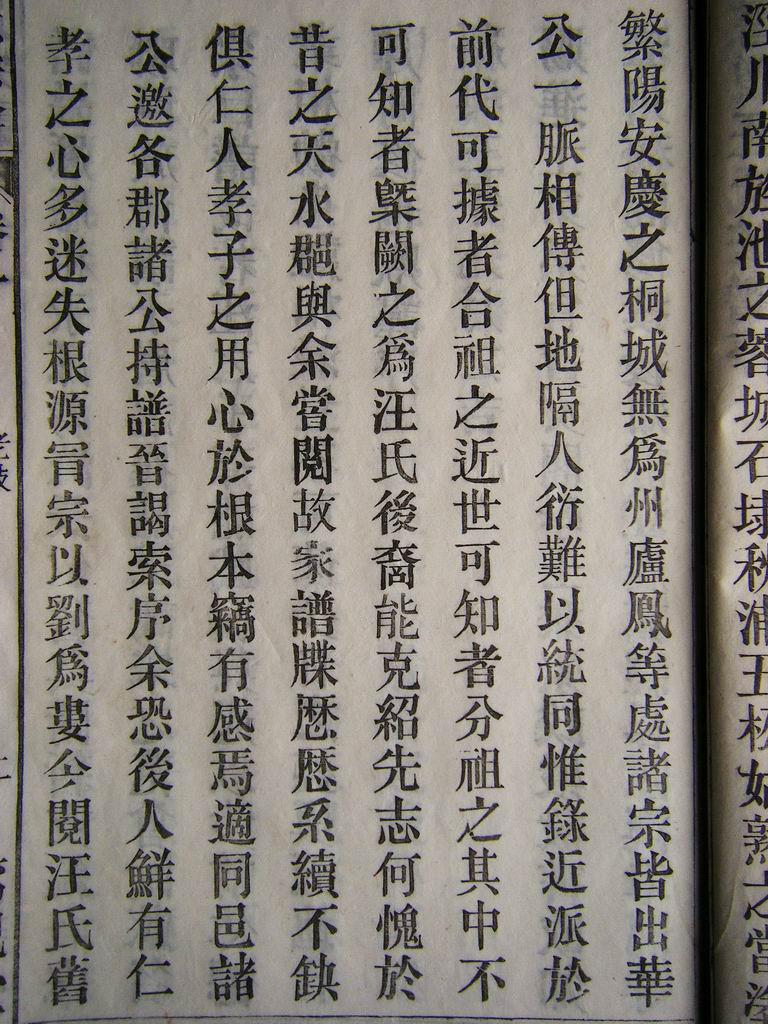 涇川南於池之蓉城石埭秋浦五松姑熟之當塗
繁陽安慶之桐城無爲州廬鳳等處諸宗皆出華
公一脈相傳但地隔人衍難以統同惟錄近派於
前代可據者合祖之近世可知者分祖之其中不
可知者槩闕之爲汪氏後裔能克紹先志何愧於
昔之天水郡與余嘗閱故家譜牒歷歷系續不缺
俱仁人孝子之用心於根本竊有感焉適同邑諸
公邀各郡諸公持譜晉謁索序余恐後人鮮有仁
孝之心多迷失根源冐宗以劉爲婁今閱汪氏舊